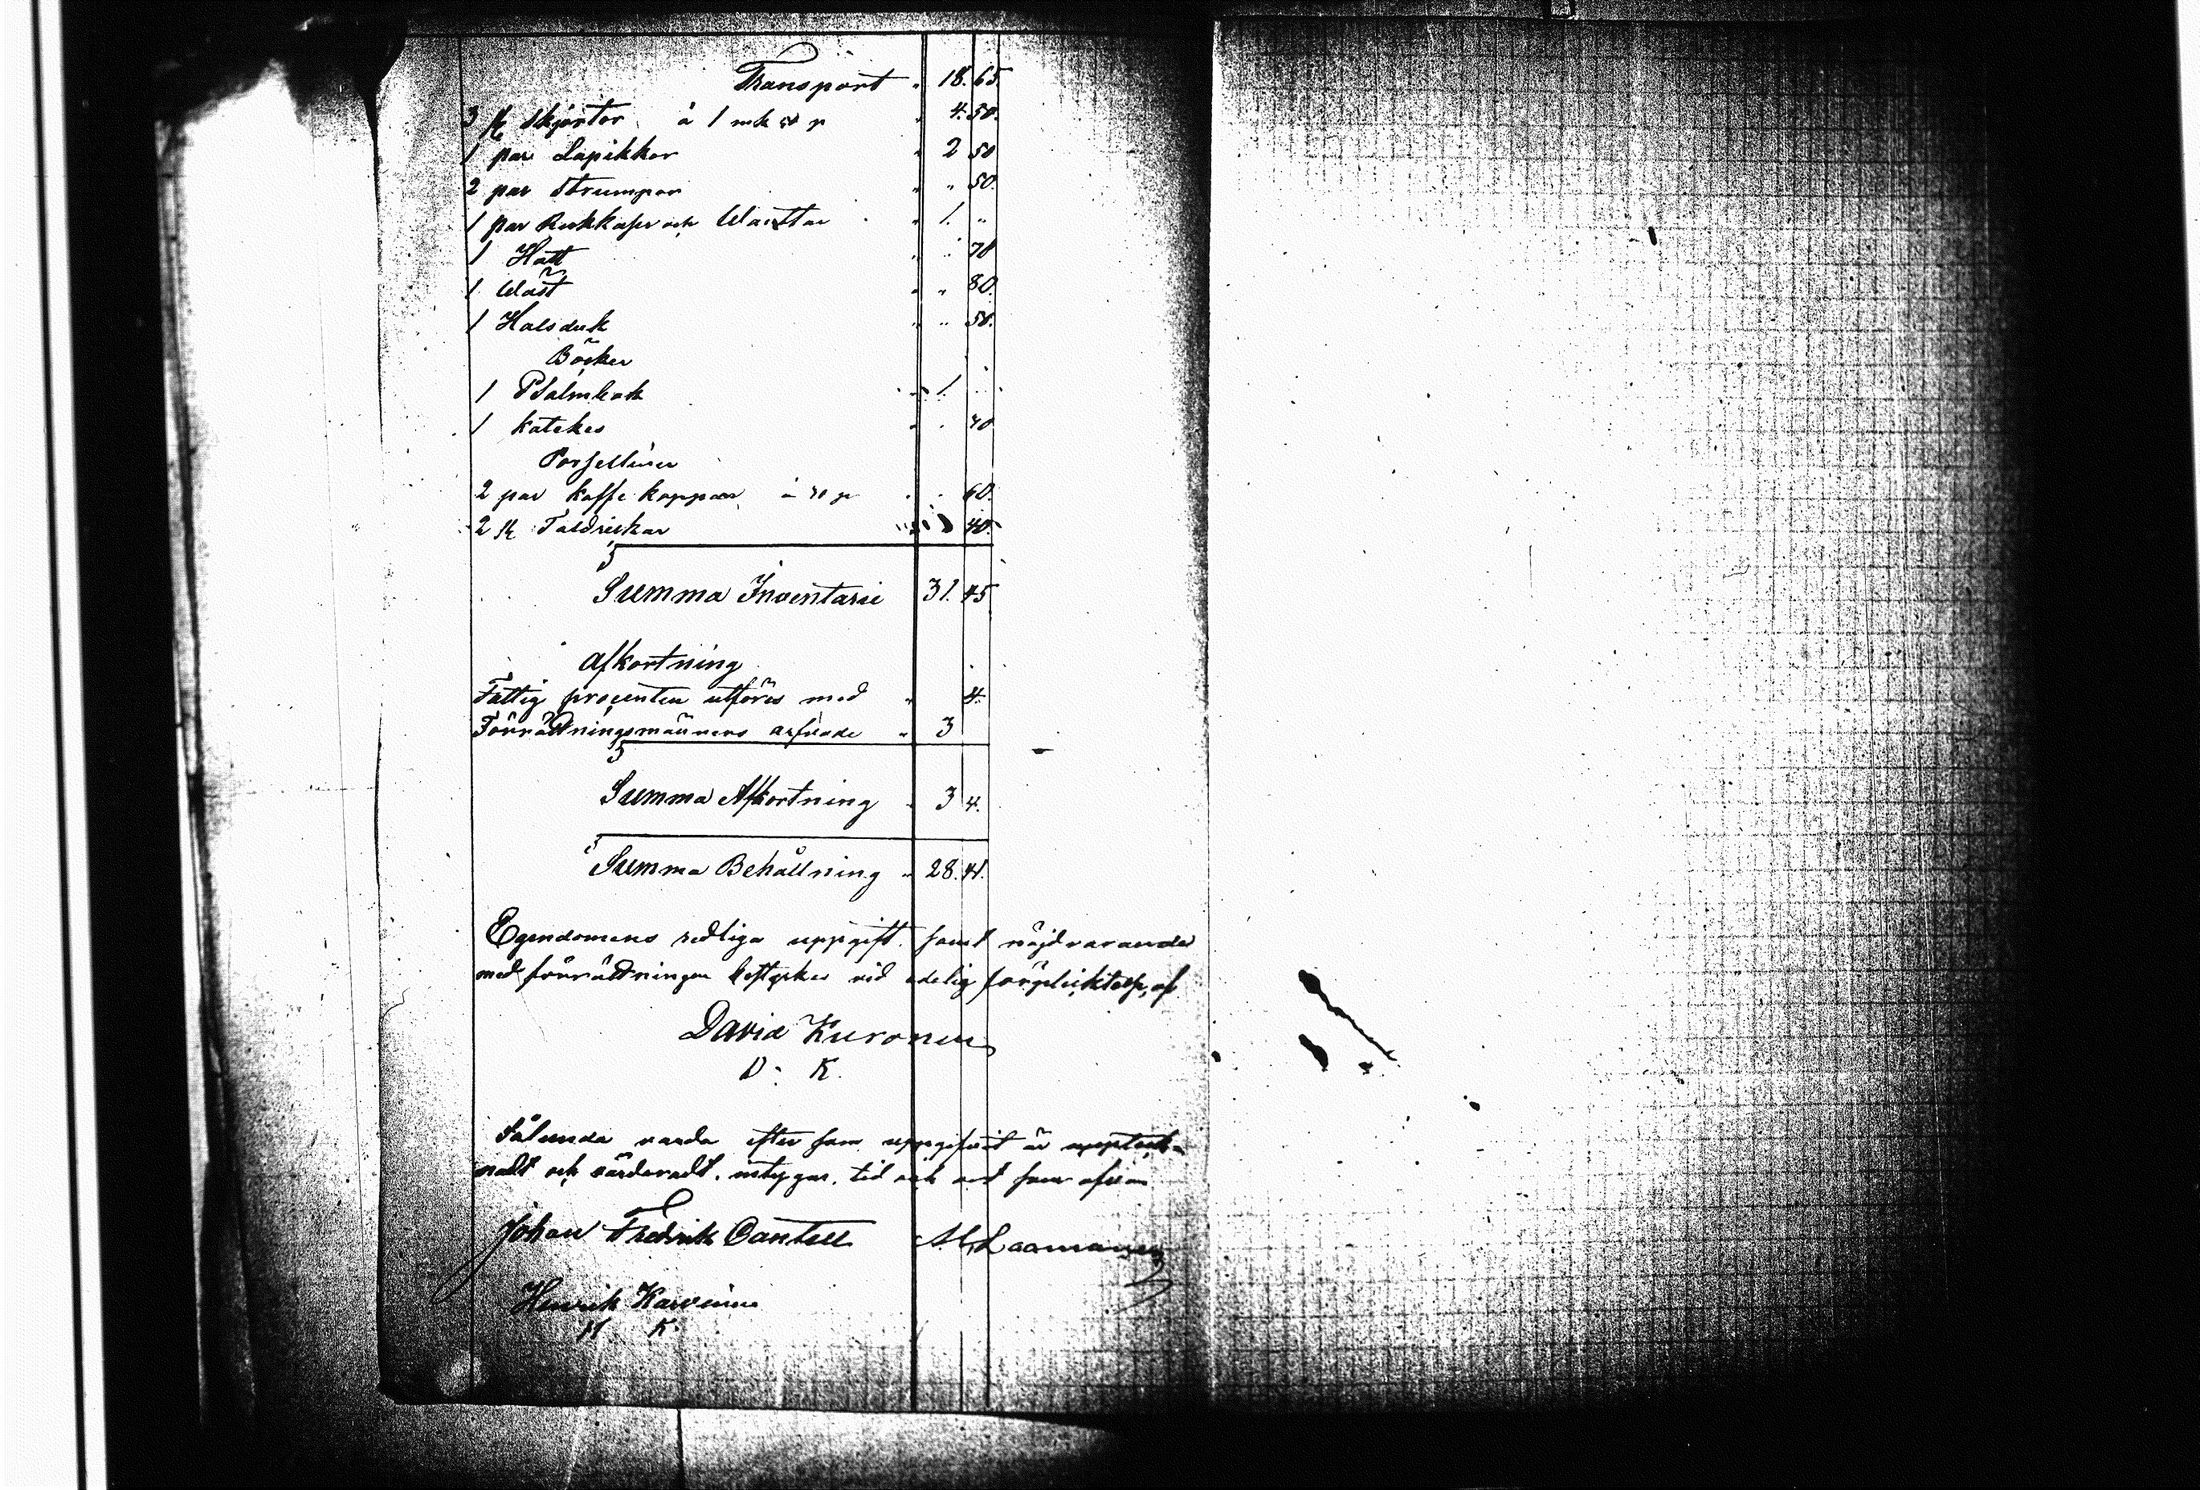 Transport " 18. 65.
3 st Skjortor à 1 mk 50 p " 4. 50.
1 par Lapikkor " 2 50
2 par Strumpor " " 50.
1 par och Wanttar " 1. "
1 Hatt " " 70
1 Wäst " " 80.
1 Halsduk " " 50.
Böcker
1 Psalmbok " 1.
1 Katekes " "
Porselliner
2 par kaffe koppar à 30 p " " 60.
2 st Taldrickar " 40.
Summa Inventarie 31. 45
Afkortning
Fattig procenten utföres med " 4.
Förrättningsmännens arfvode " 3
Summa Afkortning " 3 4.
Summa Behållning " 28. 41.
Egendomens redliga uppgift. samt nöjdvarande
med förrättningen bestyrkes vid edelig förpliktelse, af
David Kuronen
D. K.
Sålunda vara efter som uppgifvit är uppteck-
nadt och värderadt, intygar, tid och ort som ofvan
Johan Fredrik Cantell Laamanen
Henrik Karvinen
H K.